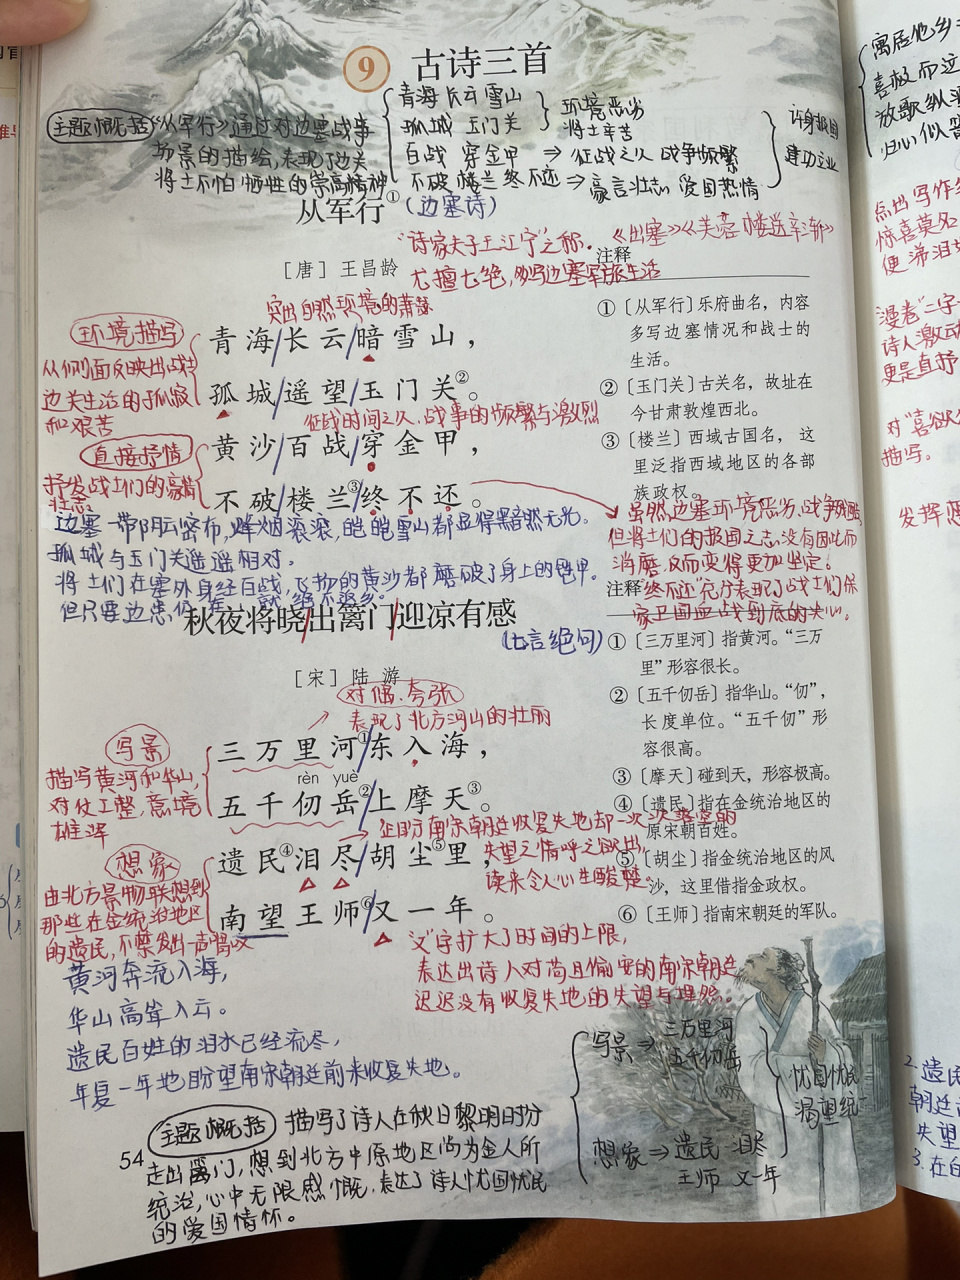 9 古诗三首
主题概括
《从军行》通过对边塞战事
场景的描绘,表现了边关
将士不怕牺牲的崇高精神
青海长云雪山
孤城 玉门关
环境恶劣
将士辛苦
百战 穿金甲 ⇒ 征战之久 战争频繁
不破楼兰终不还 ⇒ 豪言壮志 爱国热情
许身报国
建功立业
从军行①(边塞诗)
“诗家夫子王江宁”之称. 《出塞》《芙蓉楼送辛渐》
尤擅七绝,多写边塞军旅生活
[唐] 王昌龄
突出自然环境的萧瑟
环境描写
从侧面反映出战士
边关生活的孤寂
和艰苦
青海/长云/暗雪山,
孤城/遥望/玉门关②。
征战时间之久,战事的频繁与激烈
直接抒情
抒发战士们的豪情
壮志
黄沙/百战/穿金甲,
不破/楼兰③/终不还。
边塞一带阴云密布,烽烟滚滚,皑皑雪山都显得黯然无光。
孤城与玉门关遥遥相对。
将士们在塞外身经百战,飞扬的黄沙都磨破了身上的铠甲。
注释
①〔从军行〕乐府曲名,内容
多写边塞情况和战士的
生活。
②〔玉门关〕古关名,故址在
今甘肃敦煌西北。
③〔楼兰〕西域古国名,这
里泛指西域地区的各部
族政权。
虽然边塞环境恶劣,战争残酷
但将士们的报国之志没有因此而
消磨,反而变得更加坚定!
“终不还”充分表现了战士们保
家卫国血战到底的决心。
秋夜将晓/出篱门/迎凉有感
(七言绝句)
[宋] 陆游
对偶.夸张
表现了北方河山的壮丽
写景
描写黄河和华山,
对仗工整,意境
雄浑
三万里河①/东入海,
rèn yuè
五千仞岳②/上摩天③。
企盼南宋朝廷收复失地却一次次落空的
失望之情呼之欲出,
读来令人心生酸楚。
想象
由北方景物联想到
那些在金统治地区
的遗民,不禁发出一声慨叹
遗民④泪尽/胡尘⑤里,
南望王师⑥/又一年。
“又”字扩大了时间的上限,
表达出诗人对苟且偷安的南宋朝廷
迟迟没有收复失地的失望与埋怨。
注释
①〔三万里河〕指黄河。“三万
里”形容很长。
②〔五千仞岳〕指华山。“仞”,
长度单位。“五千仞”形
容很高。
③〔摩天〕碰到天,形容极高。
④〔遗民〕指在金统治地区的
原宋朝百姓。
⑤〔胡尘〕指金统治地区的风
沙,这里借指金政权。
⑥〔王师〕指南宋朝廷的军队。
黄河奔流入海,
华山高耸入云。
遗民百姓的泪水已经流尽,
年复一年地盼望南宋朝廷前来收复失地。
写景 ⇒ 三万里河
五千仞岳
想象 ⇒ 遗民 泪尽
王师 又一年
忧国忧民
渴望统一
主题概括
描写了诗人在秋日黎明时分
走出篱门,想到北方中原地区尚为金人所
统治,心中无限感慨.表达了诗人忧国忧民
的爱国情怀。
54
寓居他乡
喜极而泣
放歌纵酒
归心似箭
点出写作
惊喜莫名
便涕泪
漫卷”二字
诗人激动
更是直抒
对“喜欲
描写。
发挥想
2.遗民
朝廷
失望
3.在